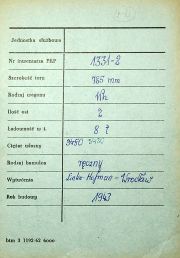 Jednostka służbowa
Nr inwentarza PKP 1331-2
Szerokość toru 785 mm
Rodzaj wagonu
Ilość osi 2
Ładowność w t. 8 t
Ciężar własny 3450 3450
Rodzaj hamulca ręczny
Wytwórnia Linke-Hofman-Wrocław
Rok budowy 1943
btm 3 1192-62 6000